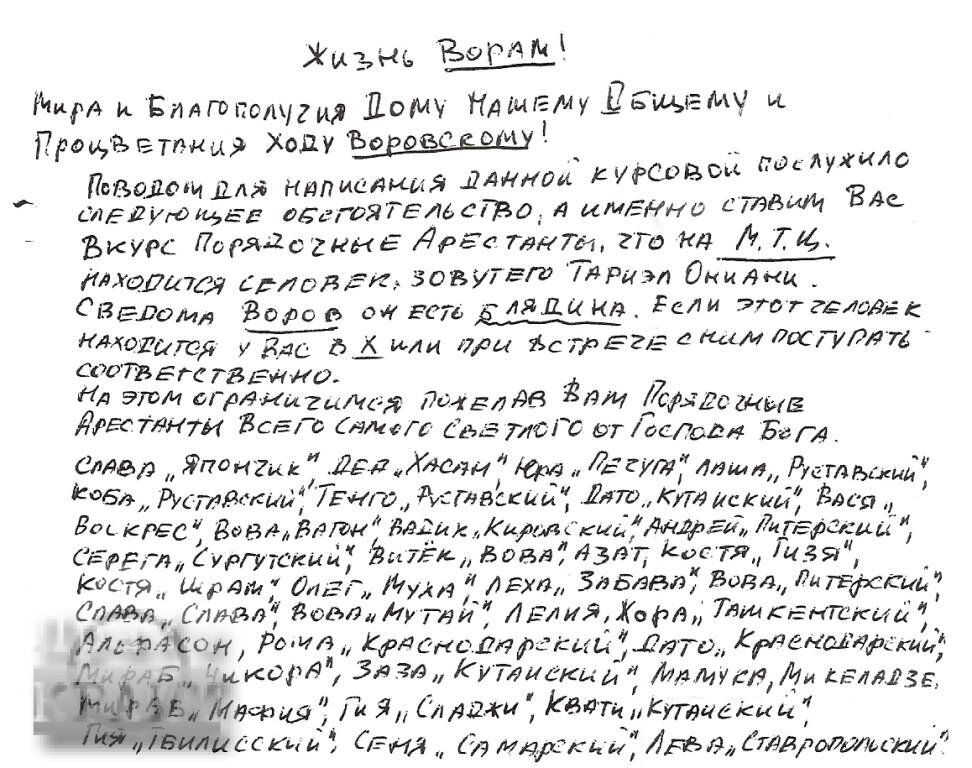 Жизнь Ворам!
Мира и Благополучия Дому Нашему Общему и
Процветания Ходу Воровскому!
Поводом для написания данной курсовой послужило
следующее обстоятельство, а именно ставим Вас
Вкурс Порядочные Арестанты, что на М.Т.Ц.
находится селовек, зовутего Тариэл Ониани.
Сведома Воров он есть блядина. Если этот человек
находится у Вас в Х или при встрече сним поступать
соответственно.
На этом ограничимся пожелав Вам Порядочные
Арестанты Всего Самого Светлого от Господа Бога.
Слава „Япончик", Дед „Хасан", Юра „Пичуга", Лаша „Руставский",
Коба „Руставский", Тенго „Руставский", Дато „Кутаиский", Вася „
Воскрес", Вова „Ватон", Вадик „Кировский", Андрей „Питерский",
Серега „Сургутский", Витёк „Вова", Азат, Костя „Гизя",
Костя „Шрам", Олег „Муха", Леха „Забава", Вова „Питерский",
Слава „Слава", Вова „Мутай", Лелия, Хора „Ташкентский",
Альфасон, Рома „Краснодарский", Дато „Краснодарский",
Мираб „Чикора", Заза „Кутаиский", Мамука, Микеладзе,
Мираб „Мафия", Гия „Сладжи", Квати „Кутаиский",
Гия „Тбилисский", Сеня „Самарский", Лева „Ставропольский".